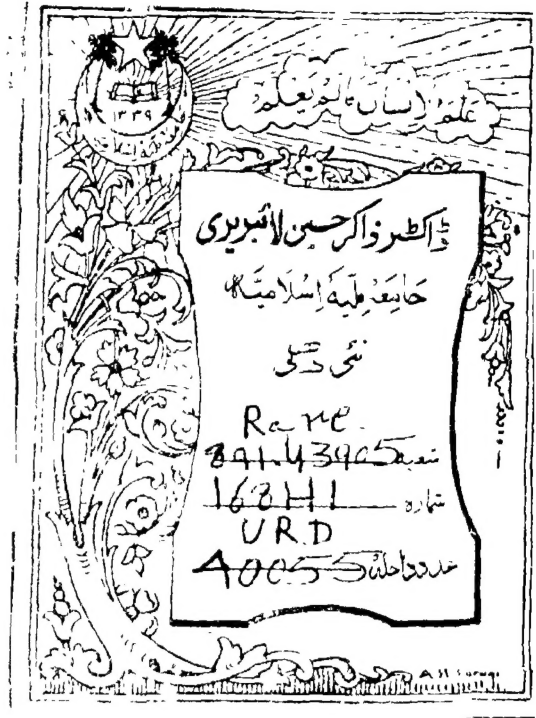 علم الانسان مالم یعلم
۱۳۳۹
ڈاکٹر ذاکر حسین لائبریری
جامعہ ملیہ اسلامیہ
نئی دہلی
Rare
شعبہ 891.43905
شمارہ 168H1
URD
عدد داخلہ 40055